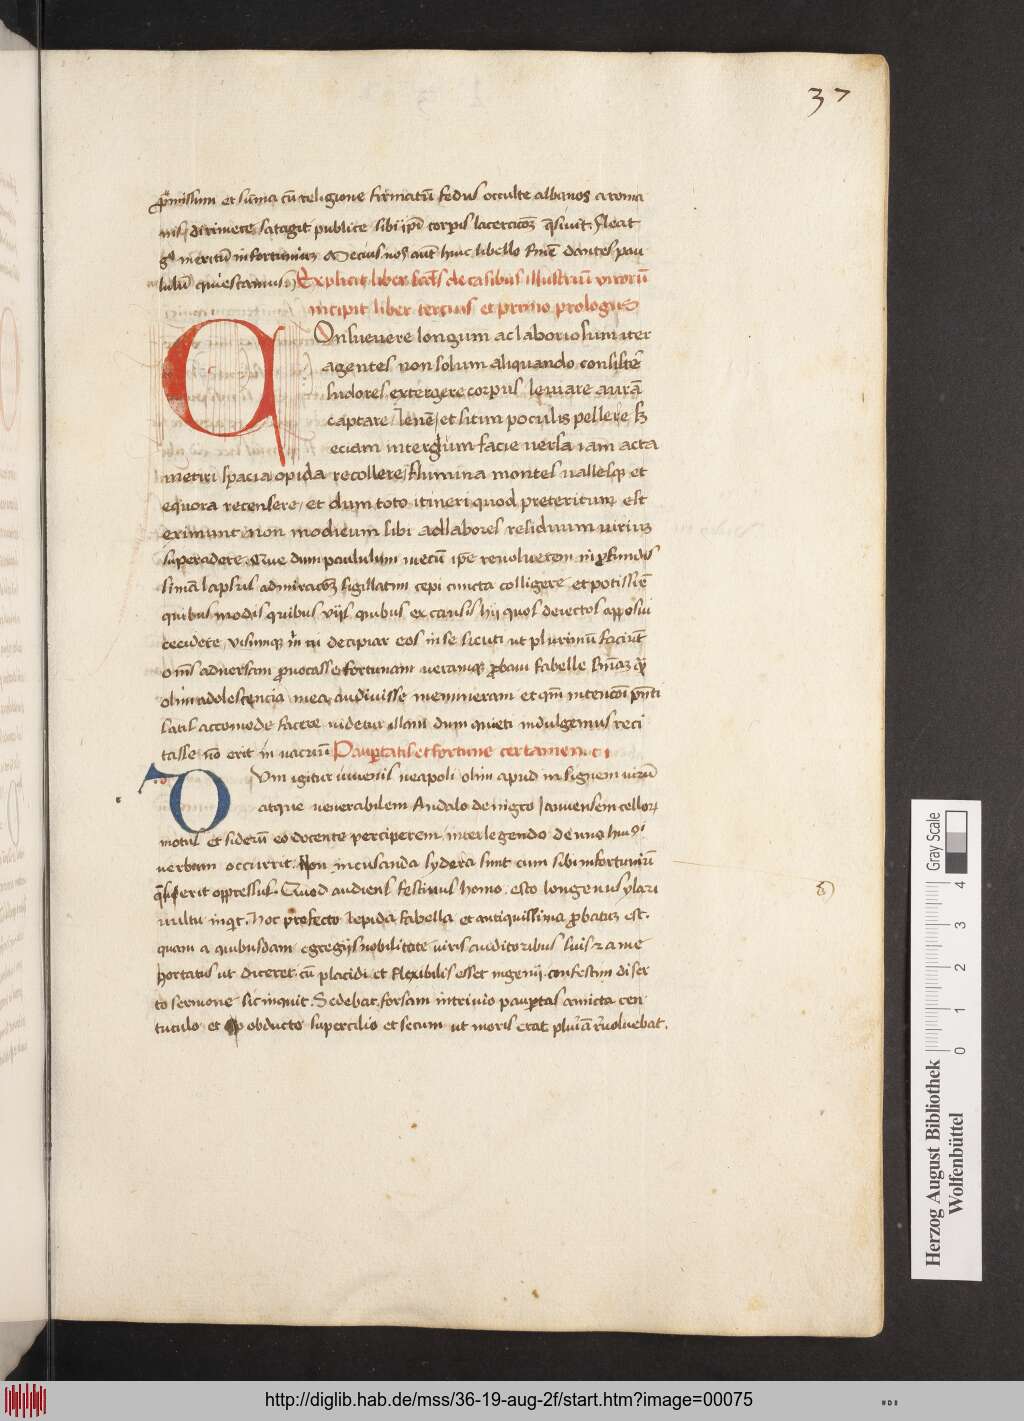 37
p̄missum et sūma cū religione firmatū fedus occulte albanos a roma
nis dirimere satagit publice sibi ipī corpus lacerari q̄siuit. Plecat
meritū infortuniū Mecius nos aūt huic libello finē dantes pau
lulū quiescamus Explicit liber scd̄s de casibus illustriū virorū
incipit liber tercius et primo prologus
Onsueuere longum ac laboriosum iter
agentes non solum aliquando consistē
sudores extergere corpus leuiare aurā
captare lenē et sitim poculis pellere sȝ
eciam intergum facie uersa iam acta
metiri spacia opida recollere flumina montes uallesqȝ et
equora recensere et dum toto itineri quod preteritum est
eximunt non modicum sibi ad labores residuum uirium
superadere. Que dum paululum mecū ip̄e reuoluerem in profundis
simā lapsus admiracōȝ sigillatim cepi cuncta colligere et potissīē
quibus modis quibus viis quibus ex causis hii quos deiectos apposui
cecidere visumqȝ m̄ ni decipiar eos in se sicuti ut plurimū faciūt
om̄s aduersam prouocasse fortunam ueramqȝ probaui fabelle
olim adolescencia mea audiuisse memineram et qm̄ intencōi
satis accomode facere uidetur illam dum quieti indulgemus reci
tasse nō erit in vacuū Paupertatis et fortune certamen c i
Um igitur iuuenis neapoli olim apud insignem uirū
atque uenerabilem Andalo de nigro Januensem cellorꝝ
motus et siderū eo docente perciperem inter legendo
verbum occurrit. Non incusanda sydera sunt cum sibi infortuniū
q̄sierit oppressus. Quod audiens festiuus homo esto longeuus ylari
uultu inqt. Hoc profecto lepida fabella et antiquissima probatum est.
quam a quibusdam egregiis nobilitate uiris auditoribus suis ⁊ a me
hortatus ut diceret cū placidi et flexibilis esset ingenii confestim diser
to sermone sic inquit. Sedebat forsam in triuio paupertas amicta cen
tuculo et obducto supercilio et secum ut moris erat plurā reuoluebat.
Gray Scale
4
3
2
1
0
Herzog August Bibliothek
Wolfenbüttel
http://diglib.hab.de/mss/36-19-aug-2f/start.htm?image=00075